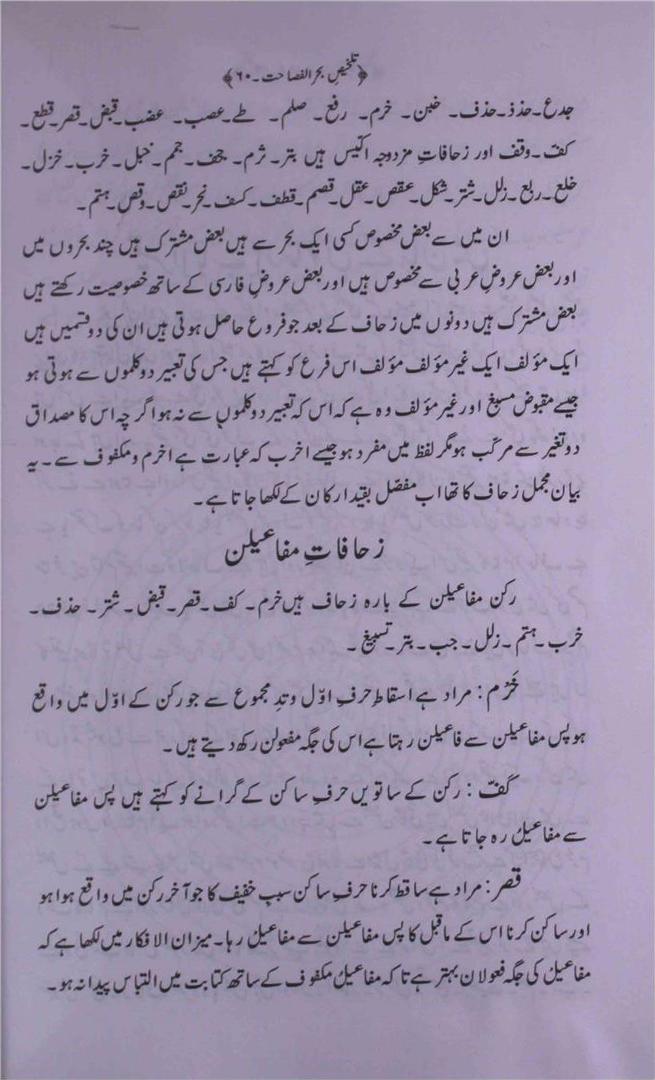 ﴿تلخیصِ بحر الفصاحت۔۶۰﴾
جدع۔حذذ۔حذف۔ خبن۔ خرم۔ رفع۔ صلم۔ طے۔عصب۔ عضب۔قبض۔قصر۔قطع۔
کفّ۔وقف اور زحافاتِ مزدوجہ اکیس ہیں بتر۔ ثرم۔ جحف۔ جمم۔خبل۔ خرب۔خزل۔
خلع۔ربع۔زلل۔شتر۔شکل۔عقص۔عقل۔قصم۔قطف۔کسف۔نحر۔نقص۔وقص۔ہتم۔
ان میں سے بعض مخصوص کسی ایک بحر سے ہیں بعض مشترک ہیں چند بحروں میں
اور بعض عروضِ عربی سے مخصوص ہیں اور بعض عروضِ فارسی کے ساتھ خصوصیت رکھتے ہیں
بعض مشترک ہیں دونوں میں زحاف کے بعد جو فروع حاصل ہوتی ہیں ان کی دو قسمیں ہیں
ایک مؤلف ایک غیر مؤلف مؤلف اس فرع کو کہتے ہیں جس کی تعبیر دو کلموں سے ہوتی ہو
جیسے مقبوض مسبغ اور غیر مؤلف وہ ہے کہ اس کہ تعبیر دو کلموں سے نہ ہو اگرچہ اس کا مصداق
دو تغیر سے مرکّب ہو مگر لفظ میں مفرد ہو جیسے اخرب کہ عبارت ہے اخرم و مکفوف سے۔یہ
بیان مجمل زحاف کا تھا اب مفصّل بقید ارکان کے لکھا جاتا ہے۔
زحافاتِ مفاعیلن
رکن مفاعیلن کے بارہ زحاف ہیں خرم۔ کف۔ قصر۔ قبض۔ شتر۔ حذف۔
خرب۔ہتم۔زلل۔جب۔بتر۔تسبیغ۔
خَرْم : مراد ہے اسقاطِ حرفِ اوّل وتدِ مجموع سے جو رکن کے اوّل میں واقع
ہو پس مفاعیلن سے فاعیلن رہتا ہے اس کی جگہ مفعولن رکھ دیتے ہیں۔
کَفّ : رکن کے ساتویں حرفِ ساکن کے گرانے کو کہتے ہیں پس مفاعیلن
سے مفاعیلُ رہ جاتا ہے۔
قصر: مراد ہے ساقط کرنا حرفِ ساکن سببِ خفیف کا جو آخر رکن میں واقع ہوا ہو
اور ساکن کرنا اس کے ماقبل کا پس مفاعیلن سے مفاعیلْ رہا۔میزان الافکار میں لکھا ہے کہ
مفاعیلْ کی جگہ فعولان بہتر ہے تاکہ مفاعیلُ مکفوف کے ساتھ کتابت میں التباس پیدا نہ ہو۔